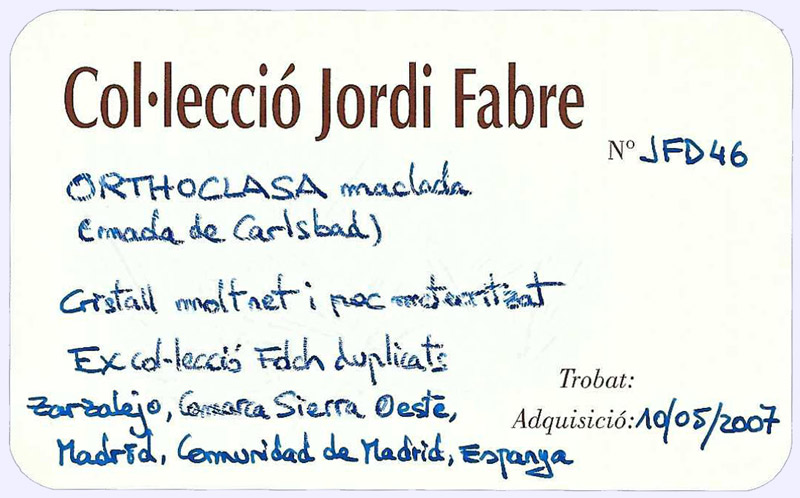 Col·lecció Jordi Fabre
Nº JFD46
ORTHOCLASA maclada
(macla de Carlsbad)
Cristall molt net i poc meteoritzat
Ex col·lecció Fdch duplicats
Trobat:
Zarzalejo, Comarca Sierra Oeste,
Adquisició: 10/05/2007
Madrid, Comunidad de Madrid, Espanya